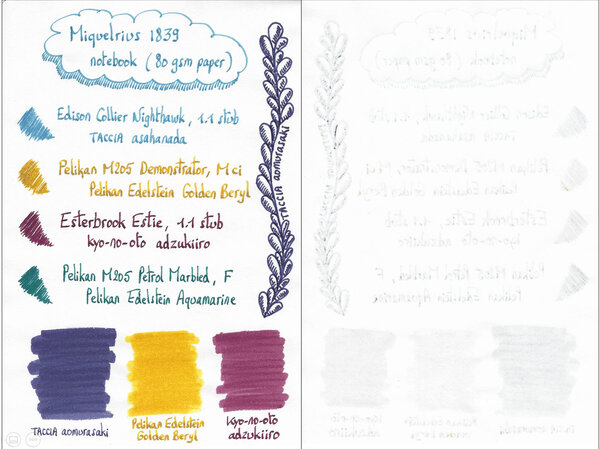 Miquelrius 1839
notebook (80 gsm paper)
Edison Collier Nighthawk, 1.1 stub
TACCIA asahanada
Pelikan M205 Demonstrator, M ci
Pelikan Edelstein Golden Beryl
Esterbrook Estie, 1.1 stub
kyo-no-oto adzukiiro
Pelikan M205 Petrol Marbled, F
Pelikan Edelstein Aquamarine
TACCIA aomurasaki
TACCIA aomurasaki
Pelikan Edelstein
Golden Beryl
Kyo-no-oto
adzukiiro